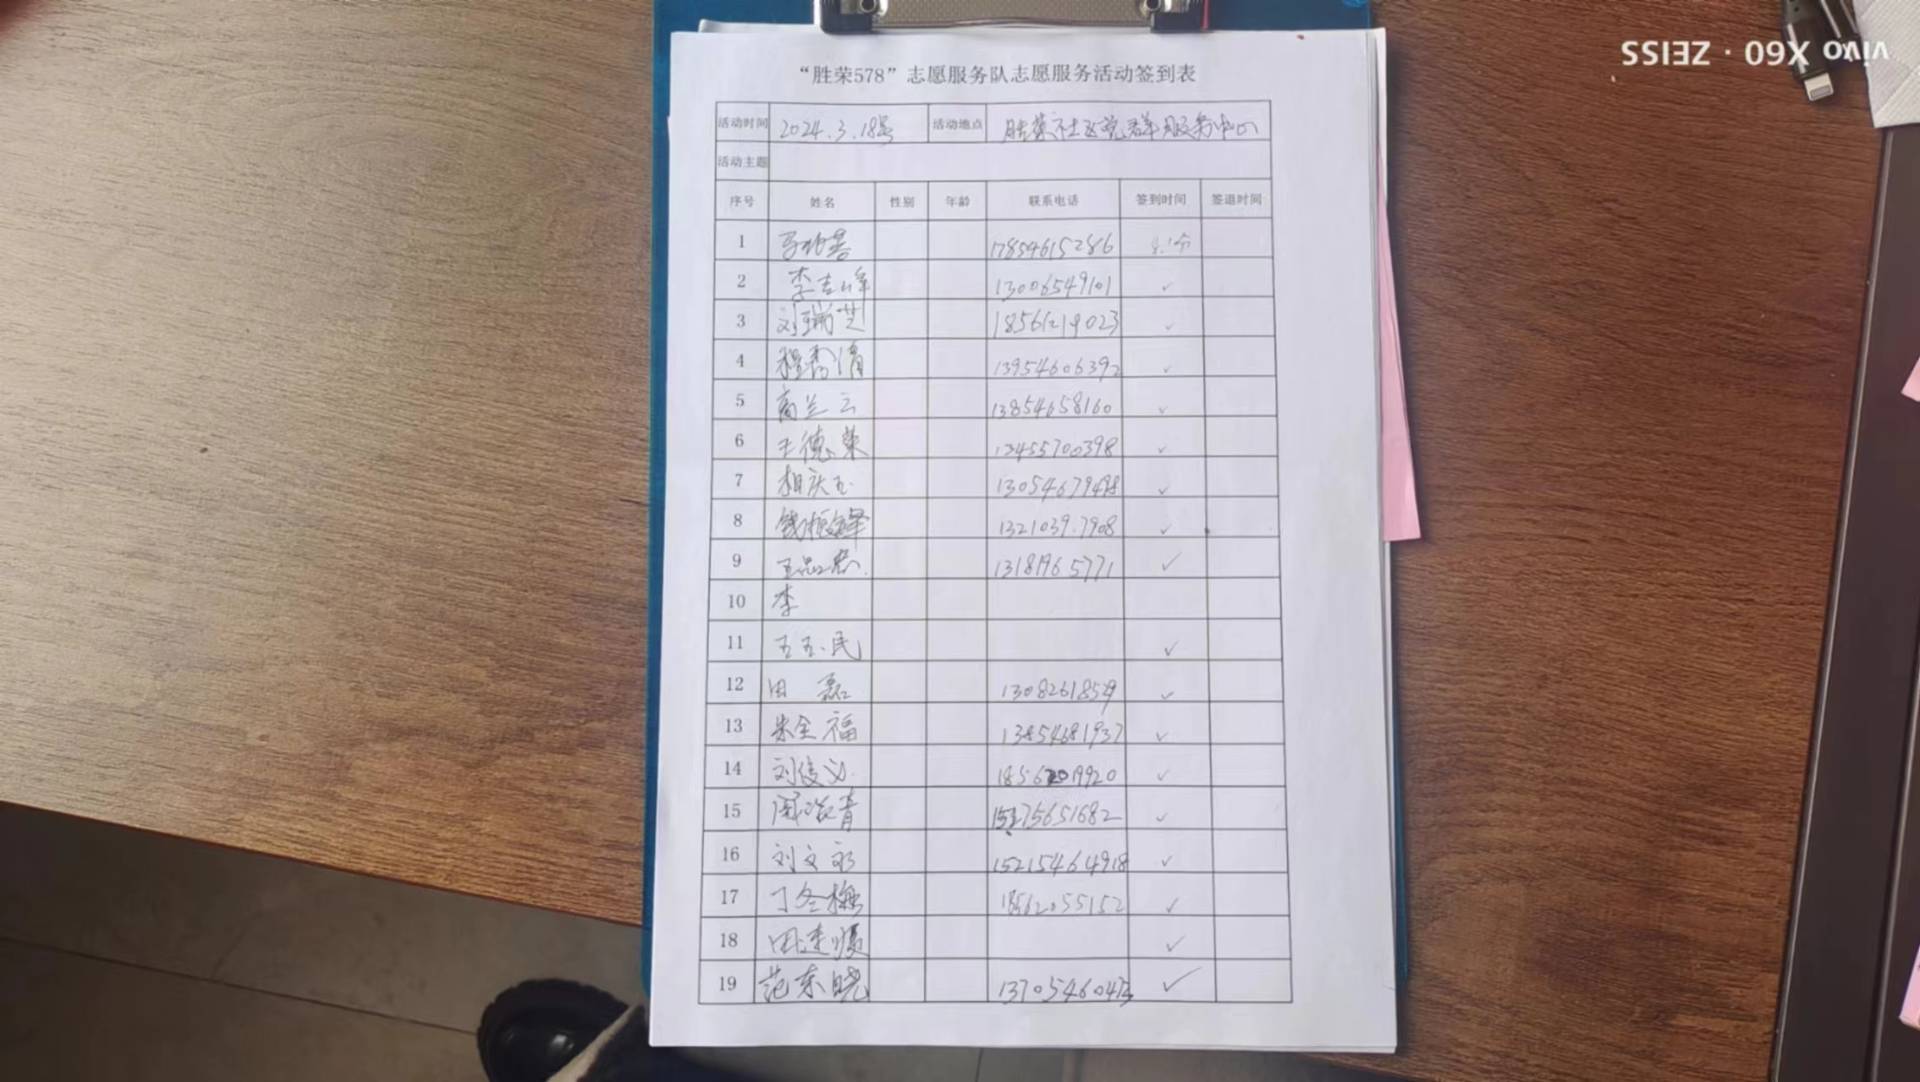 “胜荣578”志愿服务队志愿服务活动签到表
活动时间 2024.3.18号 活动地点 胜荣社区党群服务中心
活动主题
序号 姓名 性别 年龄 联系电话 签到时间 签退时间
1 17854615286
2 李吉峰 13006549101 ✓
3 刘瑞芝 18561219023 ✓
4 程秀清 13954606392 ✓
5 高兰云 13854658160 ✓
6 王德荣 ✓
7 相庆玉 13054679498 ✓
8 钱振锋 1321039.7908 ✓
9 ✓
10 李
11 王玉民 ✓
12 田磊 13082618529 ✓
13 朱全福 13854681937 ✓
14 刘俊义 ✓
15 周海青 15275651682 ✓
16 刘文 15215464918 ✓
17 丁冬梅 18562055152 ✓
18 田连顺 ✓
19 范东晓 13705460473 ✓
vivo X60 · ZEISS